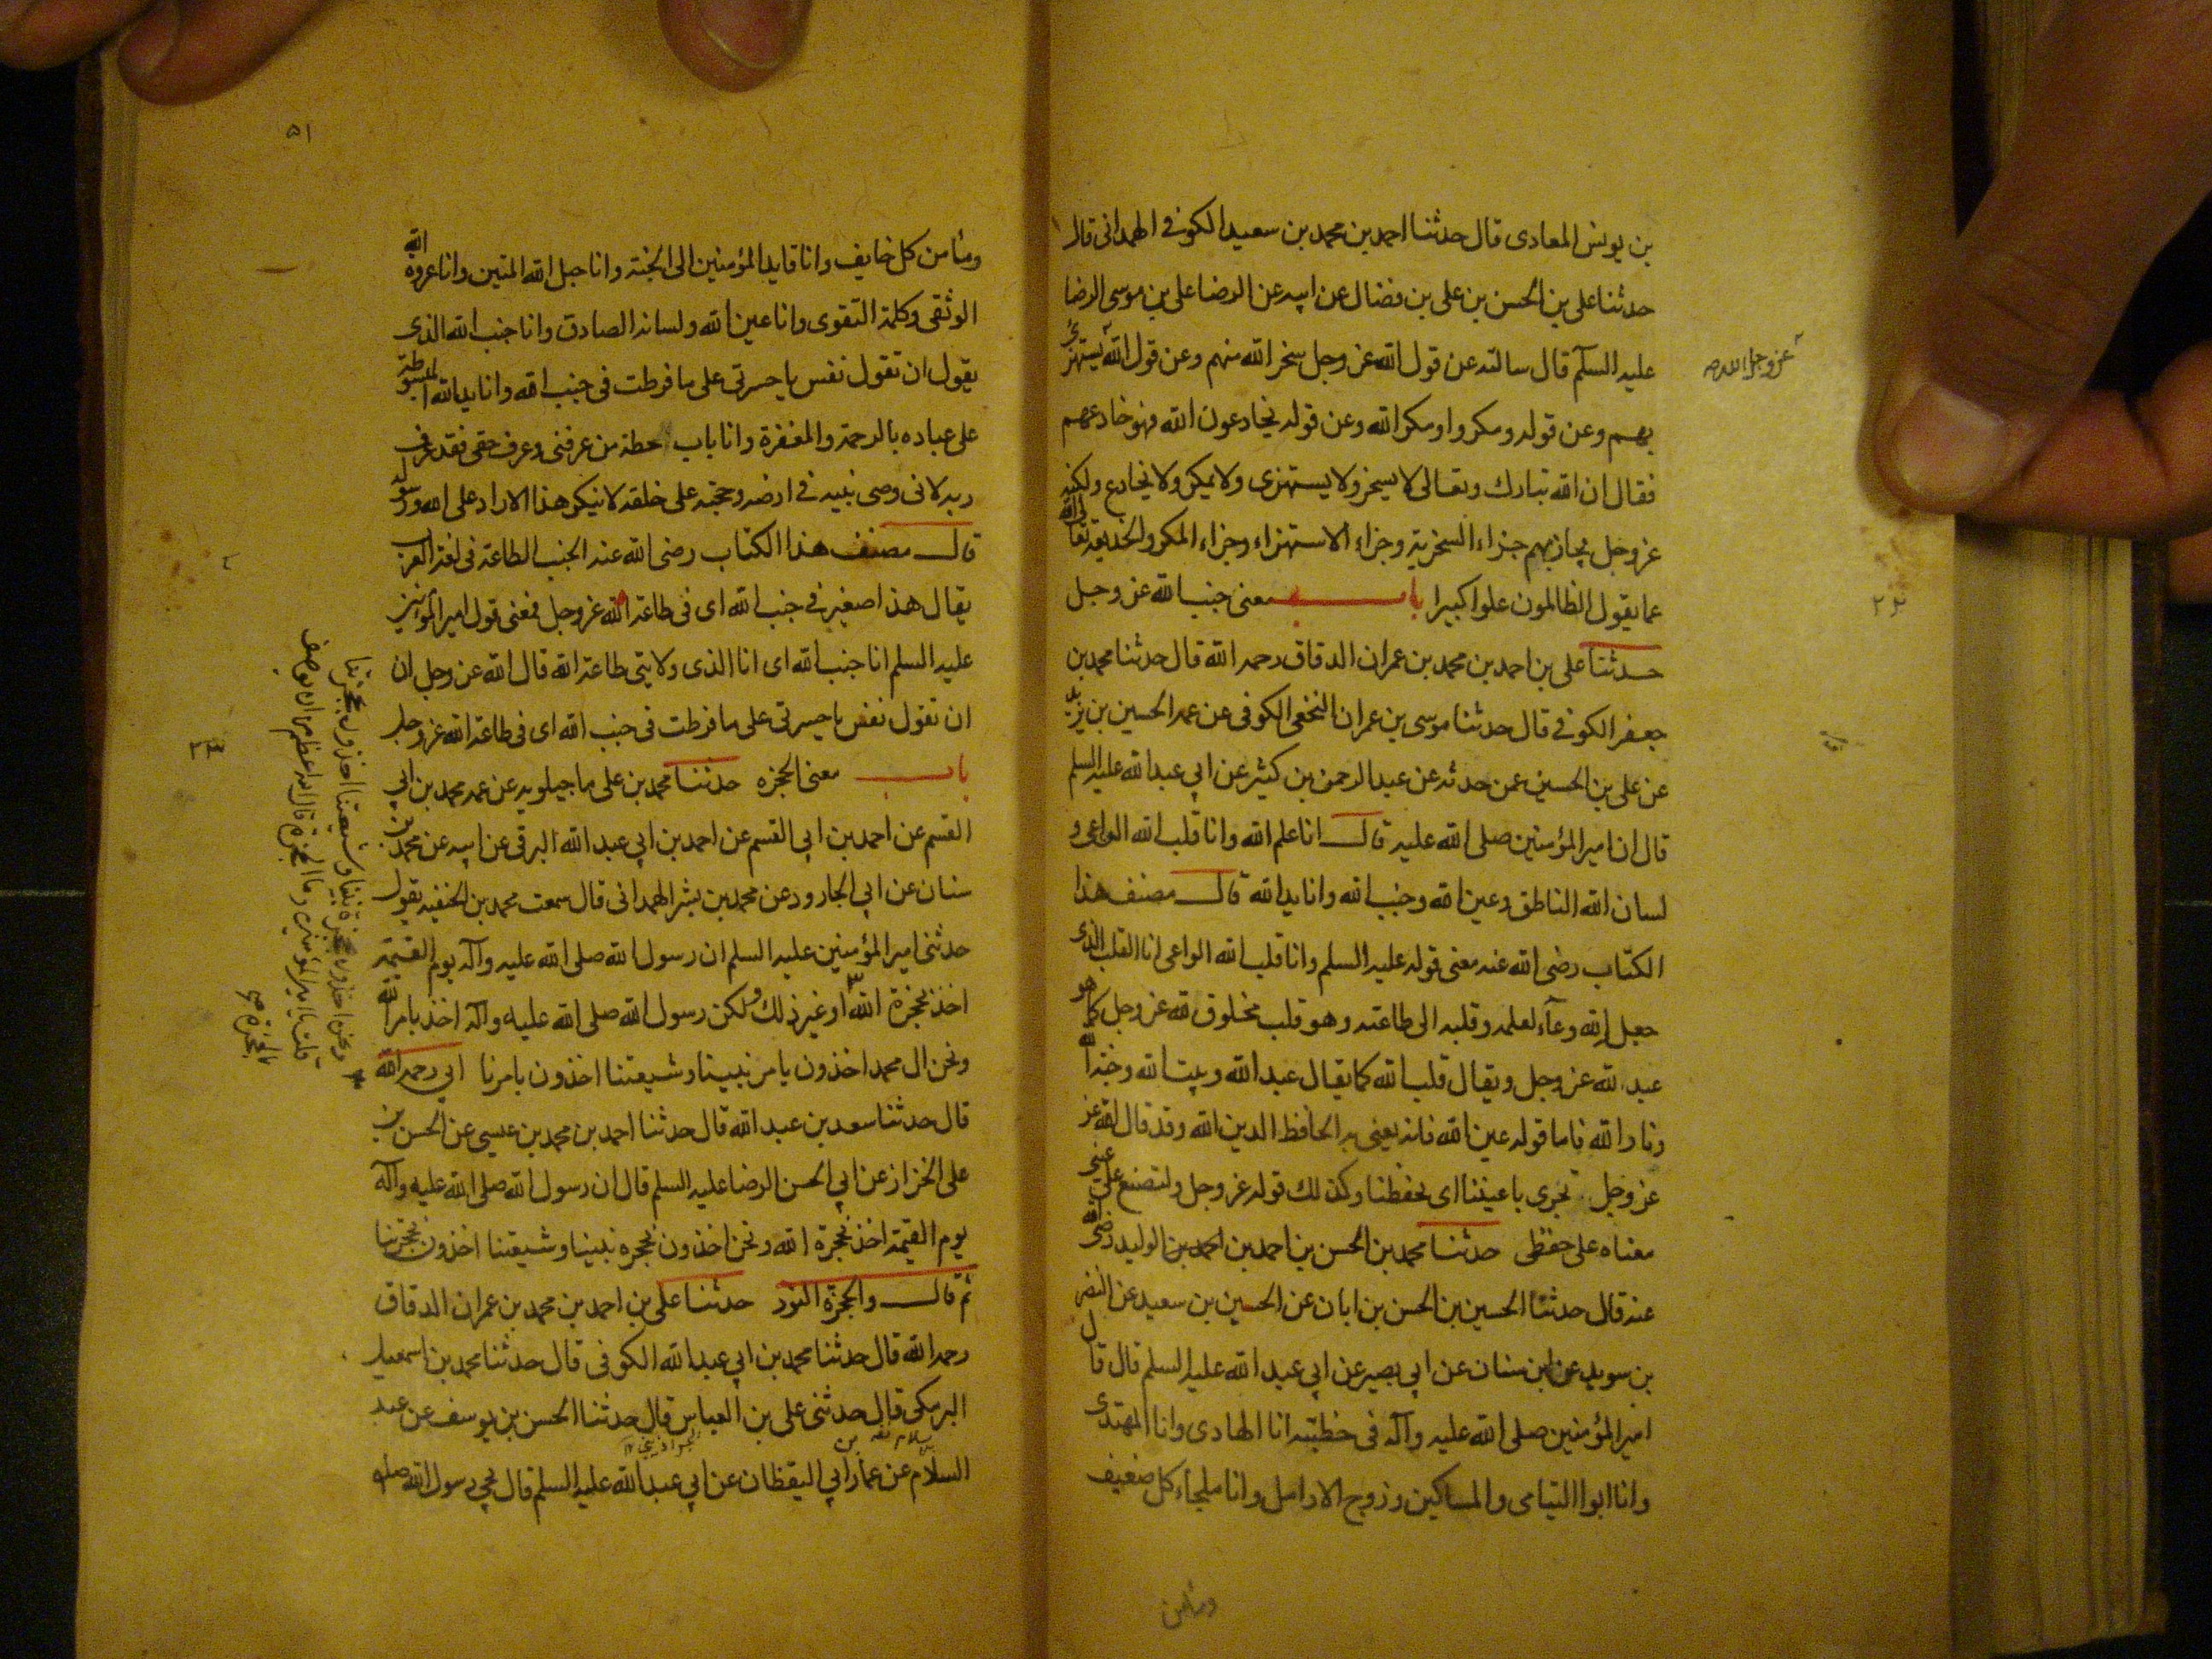 بن يونس المعادى قال حدثنا احمد بن محمد بن سعيد الكوفى الهمدانى قال
حدثنا على بن الحسن بن على بن فضال عن ابيه عن الرضا على بن موسى الرضا
عليه السلم قال سالته عن قول الله عز وجل سخر الله منهم وعن قول الله يستهزئ
عز وجل الله
بهم وعن قوله ومكروا ومكر الله وعن قوله يخادعون الله وهو خادعهم
فقال ان الله تبارك وتعالى لا يسخر ولا يستهزى ولا يمكر ولا يخادع ولكنه
عز وجل يجازيهم جزاء السخرية وجزاء الاستهزاء وجزاء المكر والخديعة تعالى الله
عما يقول الظالمون علوا كبيرا باب معنى جنب الله عز وجل
٢٢
حدثنا على بن احمد بن محمد بن عمران الدقاق رحمه الله قال حدثنا محمد بن
جعفر الكوفى قال حدثنا موسى بن عمران النخعى الكوفى عن عمه الحسين بن يزيد
عن على بن الحسين عمن حدثه عن عبد الرحمن بن كثير عن ابي عبد الله عليه السلم
قال ان امير المؤمنين صلى الله عليه قال انا علم الله وانا قلب الله الواعى و
لسان الله الناطق وعين الله وجنب الله وانا يد الله قال مصنف هذا
الكتاب رضى الله عنه معنى قوله عليه السلم وانا قلب الله الواعى انا القلب الذى
جعل الله وعآء لعلمه وقلبه الى طاعته وهو قلب مخلوق لله عز وجل كما هو
عبد لله عز وجل ويقال قلب الله كما يقال عبد الله وبيت الله وجنة الله
ونار الله فاما قوله عين الله فانه يعنى به الحافظ لدين الله وقد قال الله عز
عز وجل تجرى باعيننا اى بحفظنا وكذلك قوله عز وجل ولتصنع على عينى
معناه على حفظى حدثنا محمد بن الحسن بن احمد بن احمد بن الوليد رضى الله
عنه قال حدثنا الحسين بن الحسن بن ابان عن الحسين بن سعيد عن النضر
بن سويد عن ابن سنان عن ابي بصير عن ابي عبد الله عليه السلم قال قال
امير المؤمنين صلى الله عليه وآله فى خطبته انا الهادى وانا المهتدى
وانا ابوا اليتامى والمساكين وزوج الارامل وانا ملجاء كل ضعيف
ومامن
٥١
ومامن كل خايف وانا قايد المؤمنين الى الجنة وانا حبل الله المتين وانا عروة الله
الوثقى وكلمة التقوى وانا عين الله ولسانه الصادق وانا جنب الله الذى
يقول ان تقول نفس يا حسرتى على ما فرطت فى جنب الله وانا يد الله المبسوطة
على عباده بالرحمة والمغفرة وانا باب حطة من عرفنى وعرف حقى فقد عرف
ربه لانى وصى نبيه فى ارضه وحجته على خلقه لا ينكر هذا الا راد على الله ورسوله
قال مصنف هذا الكتاب رضى الله عنه الجنب الطاعة فى لغة العرب
يقال هذا صغير فى جنب الله اى فى طاعة الله عز وجل فمعنى قول امير المؤمنين
عليه السلم انا جنب الله اى انا الذى ولايتى طاعة الله قال الله عز وجل ان
ان تقول نفس يا حسرتى على ما فرطت فى جنب الله اى فى طاعة الله عز وجل
باب معنى الحجزه حدثنا محمد بن على ماجيلويه عن عمه محمد بن ابي
٢٣
القسم عن احمد بن ابي القسم عن احمد بن ابي عبد الله البرقى عن ابيه عن محمد بن
سنان عن ابي الجارود عن محمد بن بشر الهمدانى قال سمعت محمد بن الحنفيه يقول
حدثنى امير المؤمنين عليه السلم ان رسول الله صلى الله عليه وآله يوم القيمة
اخذ بحجزة الله او غير ذلك ولكن رسول الله صلى الله عليه وآله اخذ بامر الله
ونحن ال محمد اخذون بامر نبينا وشيعتنا اخذون بامرنا ابي رحمه الله
قال حدثنا سعد بن عبد الله قال حدثنا احمد بن محمد بن عيسى عن الحسن بن
على الخزاز عن ابي الحسن الرضا عليه السلم قال ان رسول الله صلى الله عليه وآله
يوم القيمة اخذ بحجزة الله ونحن اخذون بحجزه نبينا وشيعتنا اخذون بحجزتنا
ثم قال والحجزة النور حدثنا على بن احمد بن محمد بن عمران الدقاق
رحمه الله قال حدثنا محمد بن ابي عبد الله الكوفى قال حدثنا محمد بن اسمعيل
البرمكى قال حدثنى على بن العباس قال حدثنا الحسن بن يوسف عن عبد
السلام عن عمار ابي اليقظان عن ابي عبد الله عليه السلم قال يجى رسول الله صلى الله
ونحن اخذون بحجزة نبينا وشيعتنا اخذون بحجزتنا
قلت يا امير المؤمنين وما الحجزة قال الله اعظم من ان يوصف
بالحجزة